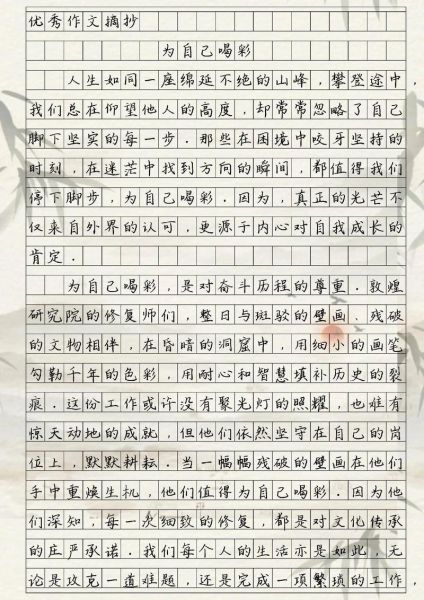 优秀作文摘抄
为自己喝彩
人生如同一座绵延不绝的山峰，攀登途中，
我们总在仰望他人的高度，却常常忽略了自己
脚下坚实的每一步．那些在困境中咬牙坚持的
时刻，在迷茫中找到方向的瞬间，都值得我们
停下脚步，为自己喝彩．因为，真正的光芒不
仅来自外界的认可，更源于内心对自我成长的
肯定．
为自己喝彩，是对奋斗历程的尊重．敦煌
研究院的修复师们，整日与斑驳的壁画、残破
的文物相伴，在昏暗的洞窟中，用细小的画笔
勾勒千年的色彩，用耐心和智慧填补历史的裂
痕．这份工作或许没有聚光灯的照耀，也难有
惊天动地的成就，但他们依然坚守在自己的岗
位上，默默耕耘．当一幅幅残破的壁画在他们
手中重焕生机，他们值得为自己喝彩．因为他
们深知，每一次细致的修复，都是对文化传承
的庄严承诺．我们每个人的生活亦是如此，无
论是攻克一道难题，还是完成一项繁琐的工作，